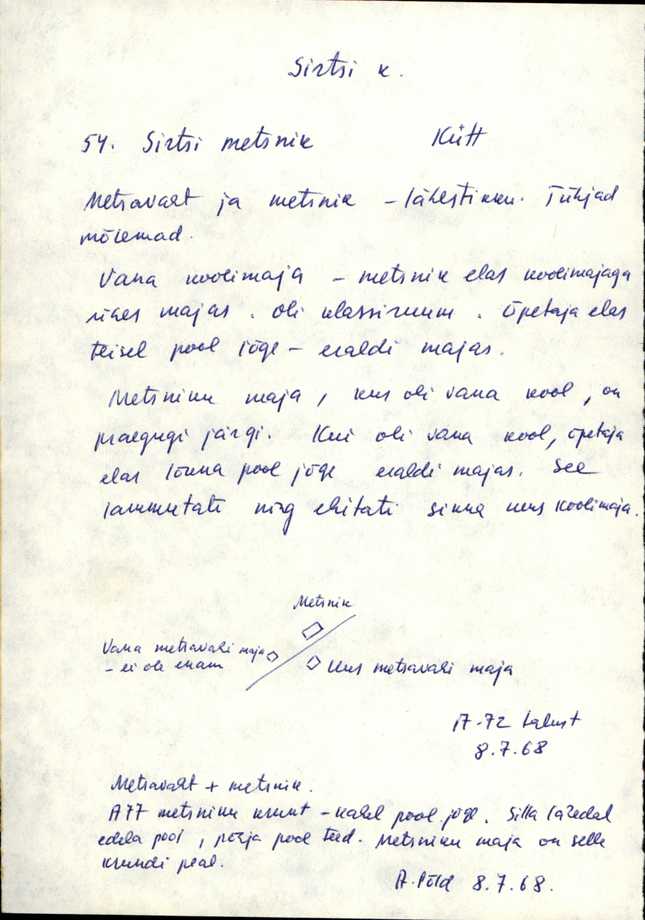 Sirtsi k.
54. Sirtsi metsnik Kütt
Metsavaht ja metsnik – lähestikku. Tühjad
mõlemad.
Vana koolimaja – metsnik elas koolimajaga
ühes majas. Oli klassiruum. Õpetaja elas
teisel pool jõge – eraldi majas.
Metsniku maja, kus oli vana kool, on
praegugi järgi. Kui oli vana kool, õpetaja
elas lõuna pool jõge eraldi majas. See
lammutati ning ehitati sinna uus koolimaja.
Metsnik
Vana metsavahi maja
– ei ole enam
Uus metsavahi maja
8.7.68
Metsavaht + metsnik.
A77 metsniku krunt – kahel pool jõge. Silla lähedal
edela pool, põhja pool teed. Metsniku maja on selle
krundi peal.
A. Põld 8.7.68.